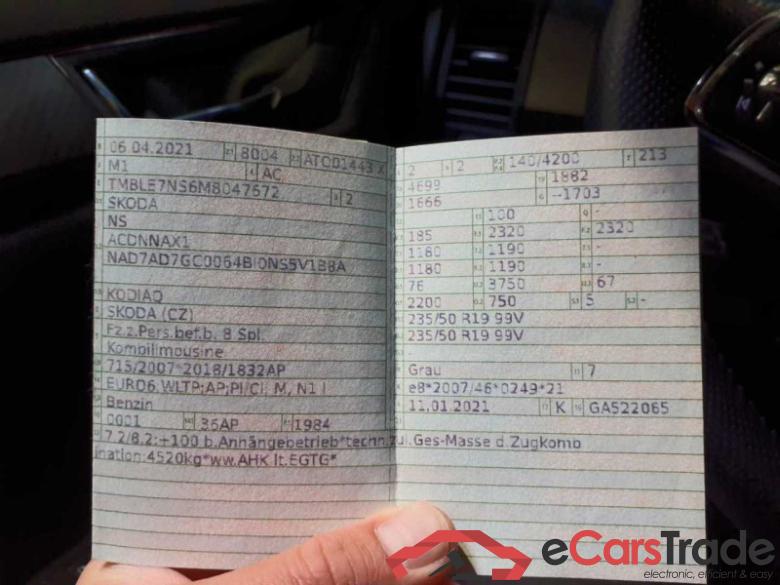 06.04.2021 8004 ATC01443 X
M1 AC
TMBLE7NS6M8047572 2
SKODA
NS
ACDNNAX1
NAD7AD7GC0064BIONS5V1B8A
KODIAQ
SKODA (CZ)
Fz.z.Pers.bef.b. 8 Spl.
Kombilimousine
715/2007*2018/1832AP
EURO6,WLTP;AP;PI/CI; M, N1 I
Benzin
0001 36AP 1984
7.2/8.2:+100 b.Anhängebetrieb*techn.zul.Ges-Masse d.Zugkomb
ination:4520kg*ww.AHK lt.EGTG*
2 2 140/4200 213
4699 1882
1666 --1703
100 -
185 2320 2320
1180 1190 -
1180 1190 -
76 3750 67
2200 750 5 -
235/50 R19 99V
235/50 R19 99V
-
Grau 7
e8*2007/46*0249*21
11.01.2021 K GA522065
eCarsTrade
electronic, efficient & easy